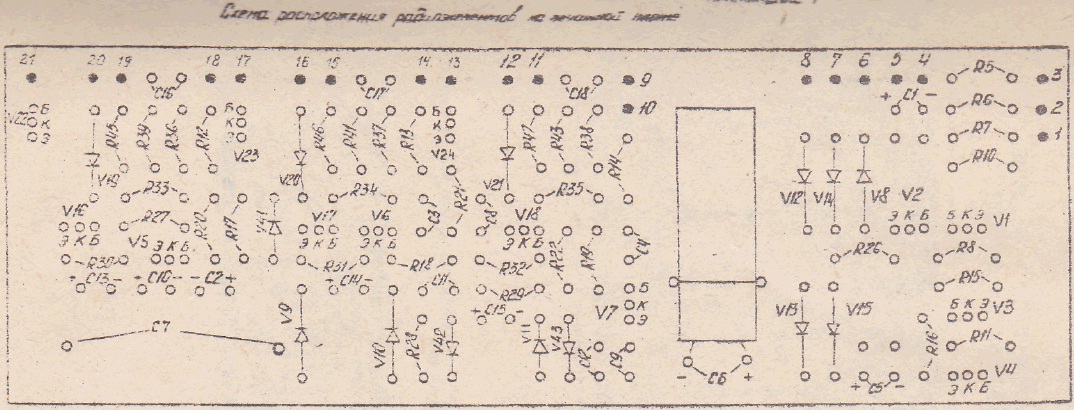 Схема расположения радиоэлементов на печатной плате
21 20 19 18 17 16 15 14 13 12 11 9 8 7 6 5 4 3
C16 C17 C18 + C1 - R5
V22 Б К Э R45 R39 R36 R12 Б К Э R46 R41 R37 R13 Б К Э R42 R43 R38 10 R6 2
R7 1
V19 V23 V20 V24 V21 R14 R10
R33 R34 R21 R35 V12 V14 V8 V2
V16 R27 R20 R17 V41 V17 V6 C3 C8 V18 V1
Э К Б V5 Э К Б Э К Б Э К Б Э К Б R22 R19 C4 Э К Б Б К Э
R30 R31 R18 R32 R26 R8
+ C13 - + C10 - - C2 + + C14 - C11 R29 R15
+ C15 - Б К Э V7 Б К Э V3
C7 V9 V10 R28 V42 V11 V43 C12 C9 V13 V15 R16 R11
- C6 + + C5 - Э К Б V4